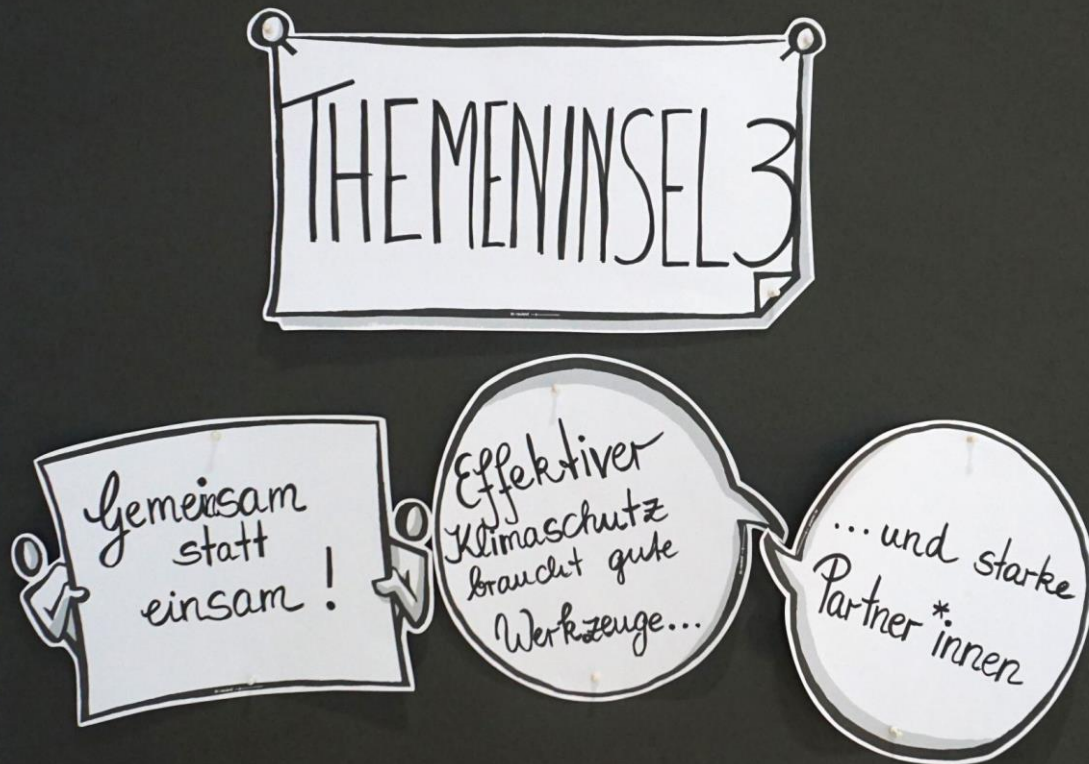 THEMENINSEL 3
Gemeinsam
statt
einsam!
Effektiver
Klimaschutz
braucht gute
Werkzeuge...
...und starke
Partner*innen